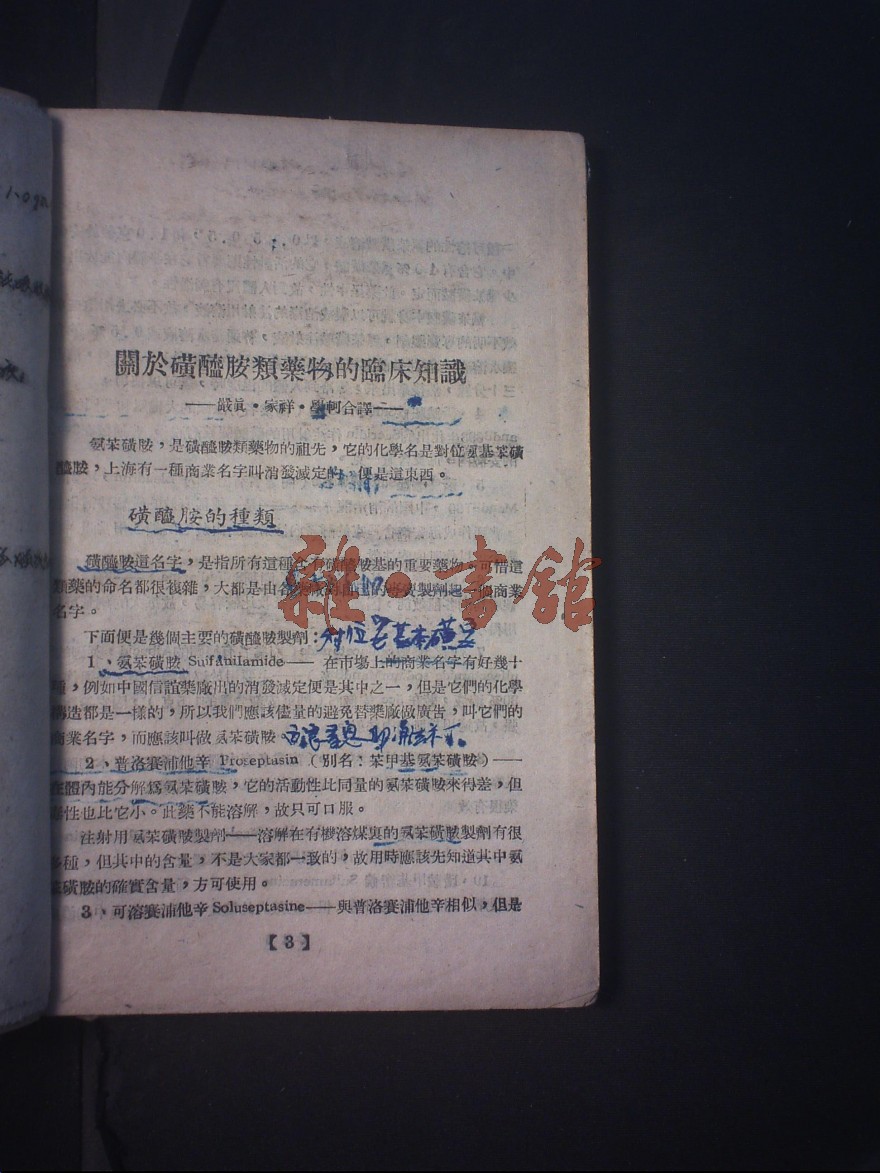 關於磺醯胺類藥物的臨床知識
——嚴眞·家祥· 柯合譯——
氨苯磺胺,是磺醯胺類藥物的祖先,它的化學名是對位氨基苯磺
醯胺,上海有一種商業名字叫消發滅定的,便是這東西。
磺醯胺的種類
磺醯胺這名字,是指所有這種含有磺醯胺基的重要藥物。可惜這
類藥的命名都很複雜,大都是由各 製劑起一個商業
名字。
下面便是幾個主要的磺醯胺製劑:
1、氨苯磺胺 Sulfanilamide—— 在市場上的商業名字有好幾十
種,例如中國信誼藥廠出的消發滅定便是其中之一,但是它們的化學
構造都是一樣的,所以我們應該儘量的避免替藥廠做廣告,叫它們的
商業名字,而應該叫做氨苯磺胺。
2、普洛賽浦他辛 Proseptasin(別名:苯甲基氨苯磺胺)——
在體內能分解爲氨苯磺胺,它的活動性比同量的氨苯磺胺來得差,但
毒性也比它小。此藥不能溶解,故只可口服。
注射用氨苯磺胺製劑——溶解在有機溶煤裏的氨苯磺胺製劑有很
多種,但其中的含量,不是大家都一致的,故用時應該先知道其中氨
苯磺胺的確實含量,方可使用。
3、可溶賽浦他辛 Soluseptasine——與普洛賽浦他辛相似,但是
【3】
雜·書館